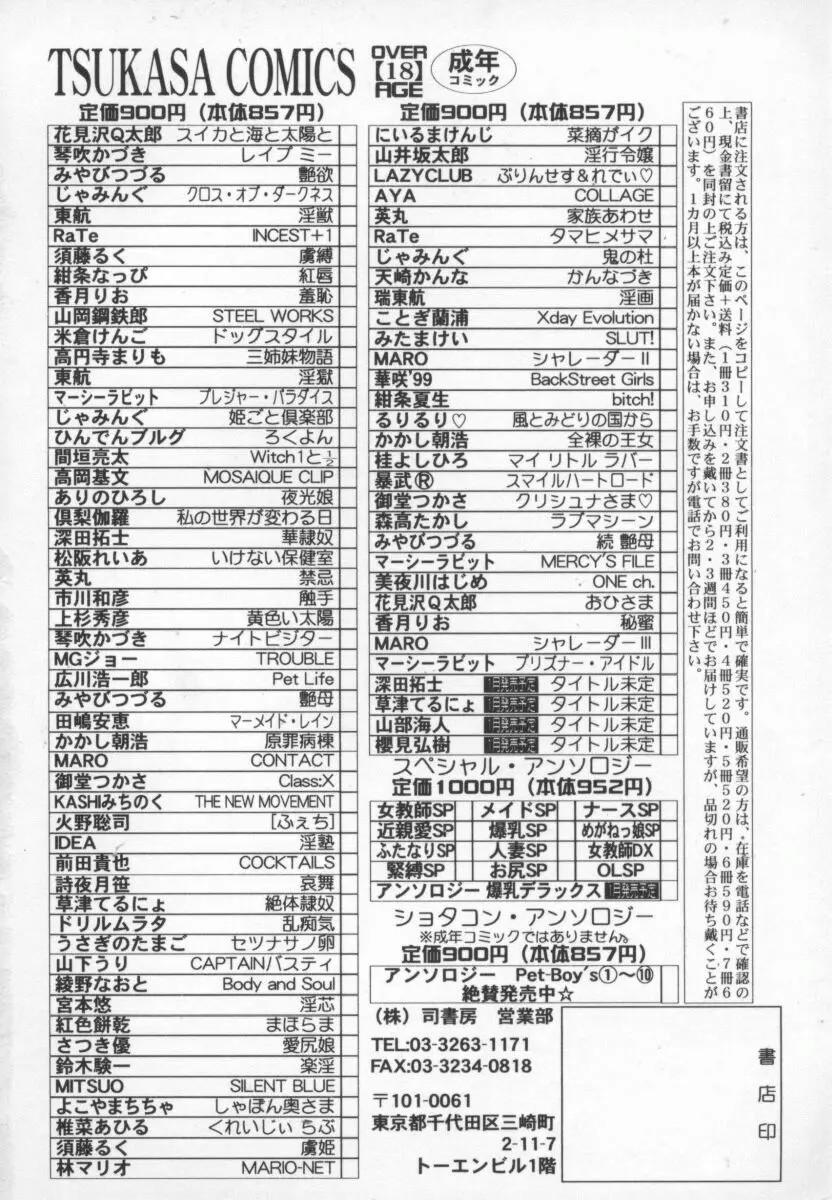 TSUKASA COMICS
OVER 【18】 AGE
成年コミック
定価900円（本体857円）
花見沢Q太郎 スイカと海と太陽と
琴吹かづき レイプ ミー
みやびつづる 艶欲
じゃみんぐ クロス・オブ・ダークネス
東航 淫獣
RaTe INCEST+1
須藤るく 虜縛
紺条なっぴ 紅唇
香月りお 羞恥
山岡鋼鉄郎 STEEL WORKS
米倉けんご ドッグスタイル
高円寺まりも 三姉妹物語
東航 淫獄
マーシーラビット プレジャー・パラダイス
じゃみんぐ 姫ごと倶楽部
ひんでんブルグ ろくよん
間垣亮太 Witch1と½
高岡基文 MOSAIQUE CLIP
ありのひろし 夜光娘
倶梨伽羅 私の世界が変わる日
深田拓士 華隷奴
松阪れいあ いけない保健室
英丸 禁忌
市川和彦 触手
上杉秀彦 黄色い太陽
琴吹かづき ナイトビジター
MGジョー TROUBLE
広川浩一郎 Pet Life
みやびつづる 艶母
田嶋安恵 マーメイド・レイン
かかし朝浩 原罪病棟
MARO CONTACT
御堂つかさ Class:X
KASHIみちのく THE NEW MOVEMENT
火野聡司 [ふぇち]
IDEA 淫塾
前田貴也 COCKTAILS
詩夜月笹 哀舞
草津てるにょ 絶体隷奴
ドリルムラタ 乱痴気
うさぎのたまご セツナサノ卵
山下うり CAPTAINバスティ
綾野なおと Body and Soul
宮本悠 淫芯
紅色餅乾 まほらま
さつき優 愛尻娘
鈴木験一 楽淫
MITSUO SILENT BLUE
よこやまちちゃ しゃぼん奥さま
椎菜あひる くれいじぃ ちぷ
須藤るく 虜姫
林マリオ MARIO-NET
定価900円（本体857円）
にいるまけんじ 菜摘がイク
山井坂太郎 淫行令嬢
LAZYCLUB ぷりんせす&れでぃ♡
AYA COLLAGE
英丸 家族あわせ
RaTe タマヒメサマ
じゃみんぐ 鬼の杜
天崎かんな かんなづき
瑞東航 淫画
ことぎ蘭浦 Xday Evolution
みたまけい SLUT!
MARO シャレーダーⅡ
華咲'99 BackStreet Girls
紺条夏生 bitch!
るりるり♡ 風とみどりの国から
かかし朝浩 全裸の王女
桂よしひろ マイ リトル ラバー
暴武Ⓡ スマイルハートロード
御堂つかさ クリシュナさま♡
森高たかし ラブマシーン
みやびつづる 続 艶母
マーシーラビット MERCY'S FILE
美夜川はじめ ONE ch.
花見沢Q太郎 おひさま
香月りお 秘蜜
MARO シャレーダーⅢ
マーシーラビット プリズナー・アイドル
深田拓士 1月発売予定 タイトル未定
草津てるにょ 1月発売予定 タイトル未定
山部海人 1月発売予定 タイトル未定
櫻見弘樹 1月発売予定 タイトル未定
スペシャル・アンソロジー
定価1000円（本体952円）
女教師SP メイドSP ナースSP
近親愛SP 爆乳SP めがねっ娘SP
ふたなりSP 人妻SP 女教師DX
緊縛SP お尻SP OLSP
アンソロジー 爆乳デラックス 1月発売予定
ショタコン・アンソロジー
※成年コミックではありません。
定価900円（本体857円）
アンソロジー Pet-Boy's①～⑩
絶賛発売中☆
（株）司書房 営業部
TEL:03-3263-1171
FAX:03-3234-0818
〒101-0061
東京都千代田区三崎町
2-11-7
トーエンビル1階
書店印
書店に注文される方は、このページをコピーして注文書としてご利用になると簡単で確実です。通販希望の方は、在庫を電話などで確認の
上、現金書留にて税込み定価＋送料（1冊310円・2冊380円・3冊450円・4冊520円・5冊520円・6冊590円・7冊6
60円）を同封の上ご注文下さい。また、お申し込みを戴いてから2・3週間ほどでお届けしていますが、品切れの場合お待ち戴くことが
ございます。1カ月以上本が届かない場合は、お手数ですが電話でお問い合わせ下さい。